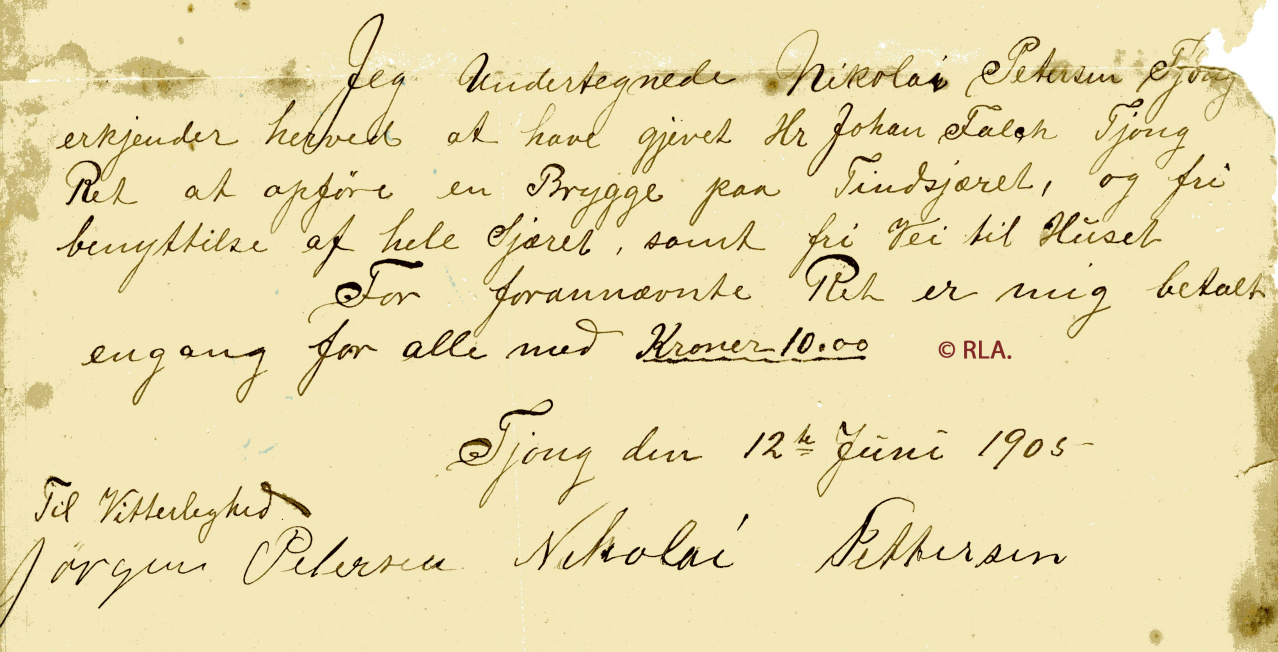 Jeg Undertegnede Nikolai Petersen Tjong
erkjender herved at have gjevet Hr Johan Falch Tjong
Ret at opføre en Brygge paa Tindsjæret, og fri
benyttilse af hele Sjæret, samt fri Vei til Huset
For forannævnte Ret er mig betalt
engang for alle med Kroner 10.00
© RLA.
Tjong den 12te Juni 1905
Til Vitterleghed
Jörgen Petersen Nikolai Pettersen